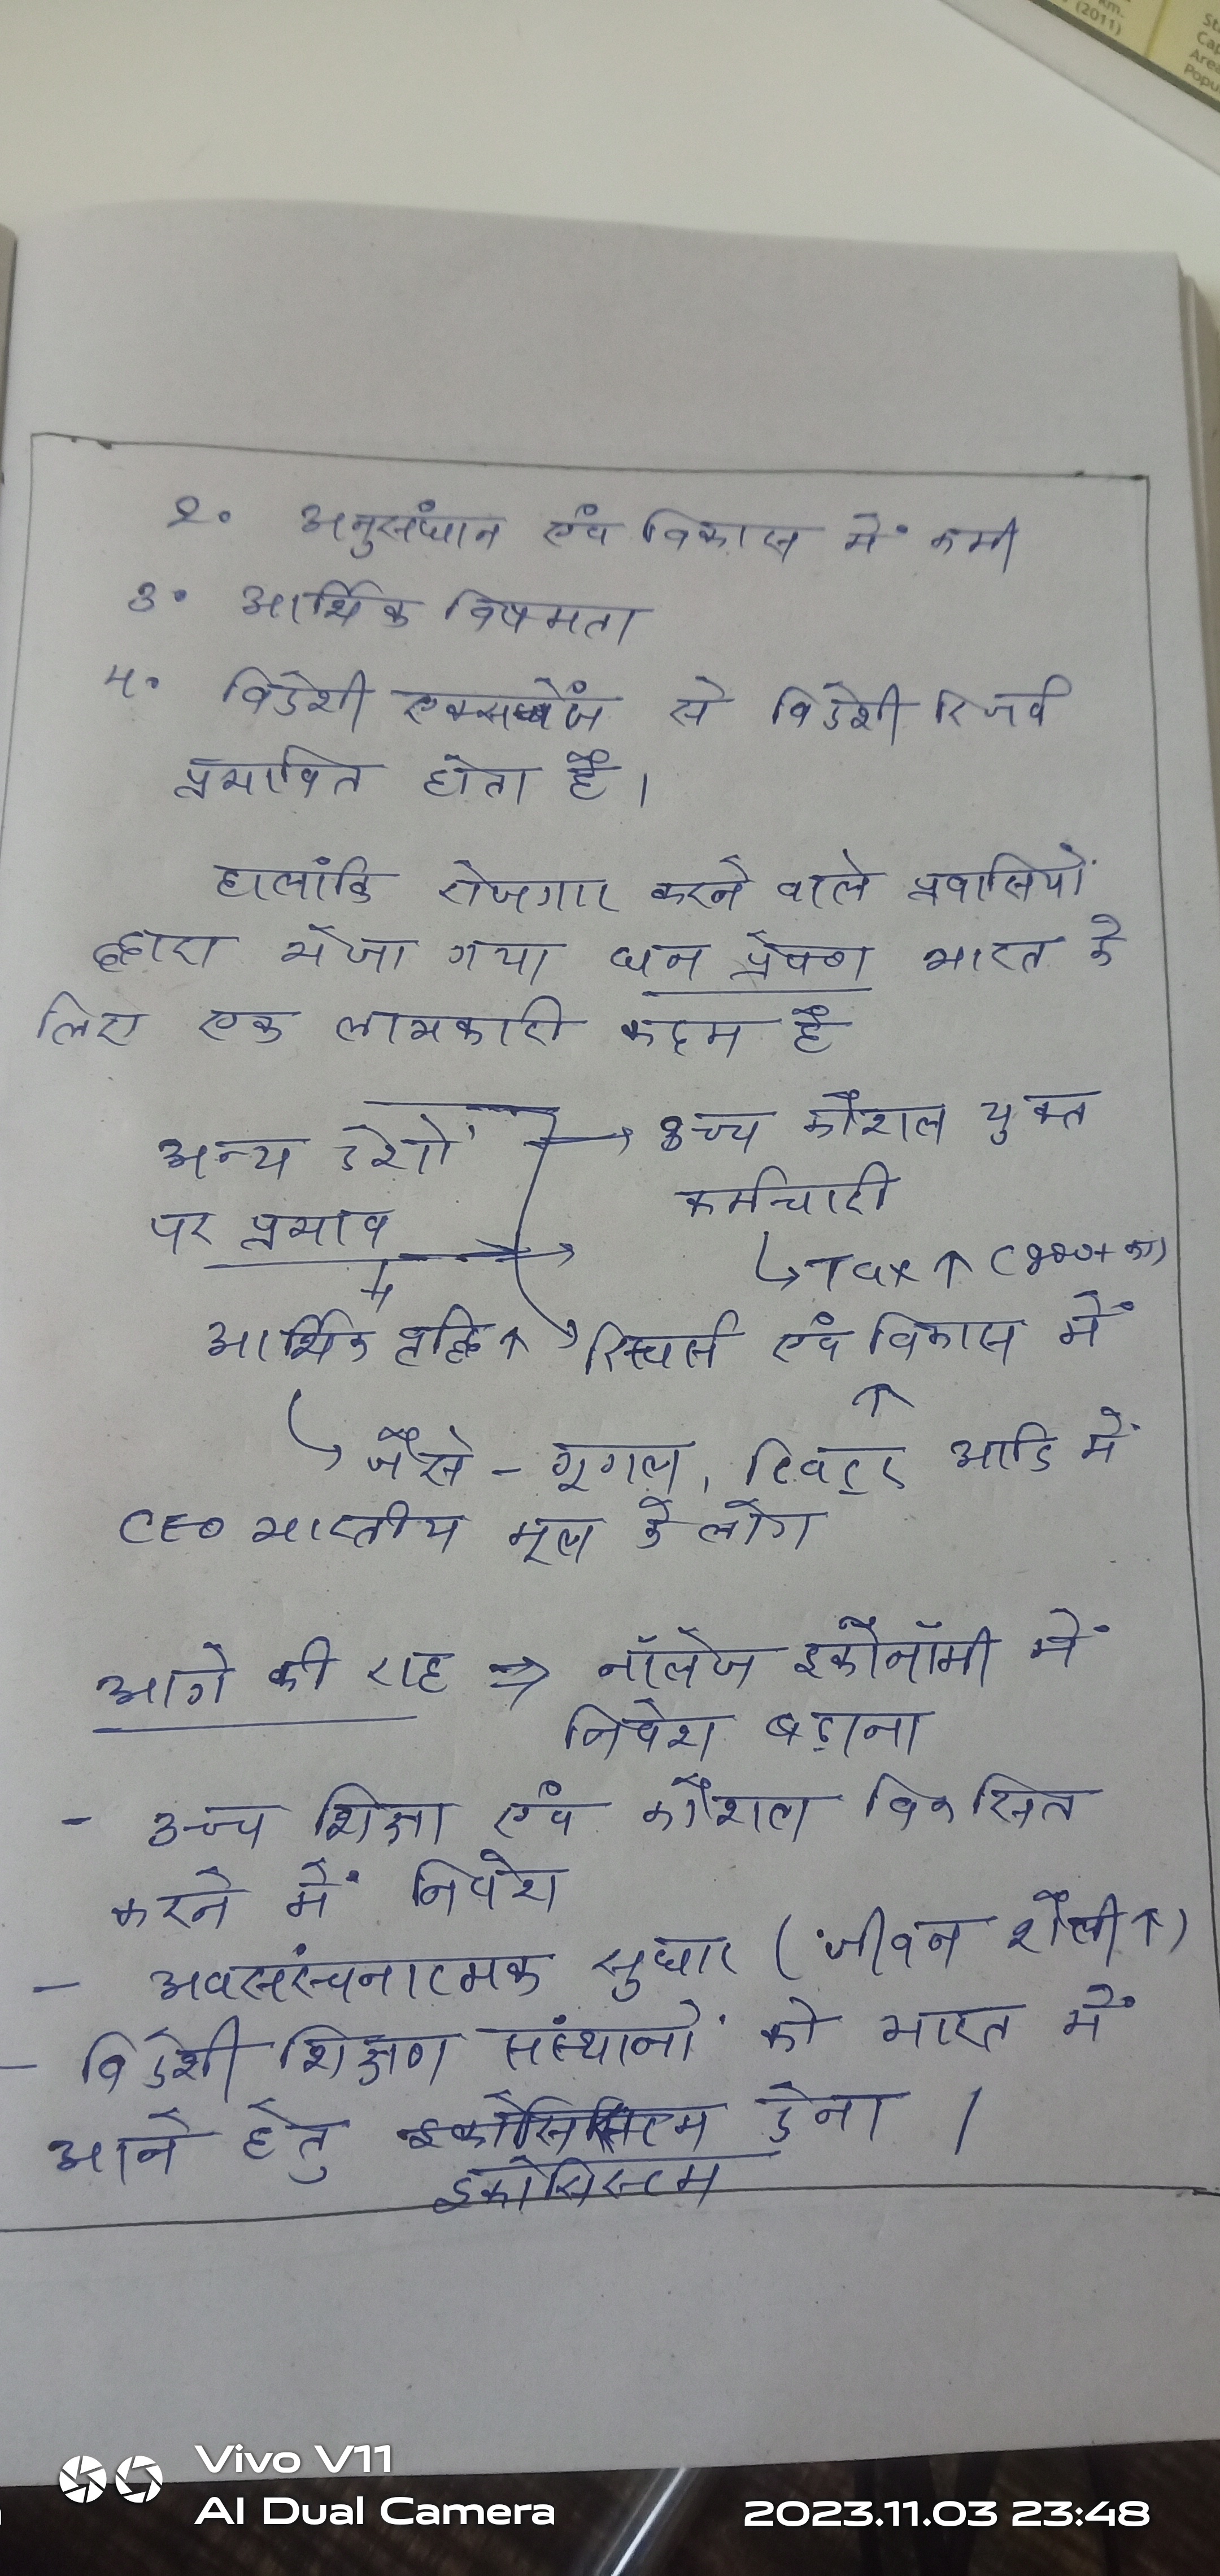 km.
(2011)
St
Cap
Area
Popu
2. अनुसंधान एवं विकास में कमी
3. आर्थिक विषमता
4. विदेशी एक्सचेंज से विदेशी रिजर्व
प्रभावित होता है।
हालांकि रोजगार करने वाले प्रवासियों
द्वारा भेजा गया धन प्रेषण भारत के
लिए एक लाभकारी कदम है
अन्य देशों → उच्च कौशल युक्त
पर प्रभाव कर्मचारी
↳ Tax ↑
आर्थिक वृद्धि ↑ रिसर्च एवं विकास में
↑
↳ जैसे - गूगल, ट्विटर आदि में
CEO भारतीय मूल के लोग
आगे की राह ⇒ नॉलेज इकोनॉमी में
निवेश बढ़ाना
- उच्च शिक्षा एवं कौशल विकसित
करने में निवेश
- अवसंरचनात्मक सुधार (जीवन शैली ↑)
- विदेशी शिक्षण संस्थानों को भारत में
आने हेतु देना ।
इकोसिस्टम
Vivo V11
AI Dual Camera
2023.11.03 23:48